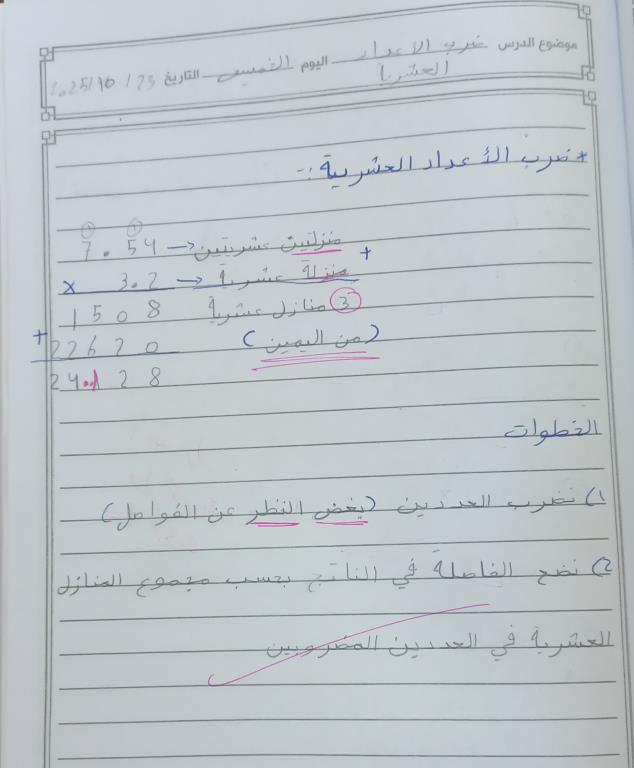 موضوع الدرس ضرب الاعداد اليوم الخميس التاريخ 23 / 10 / 2025
العشرية
* ضرب الأعداد العشرية :-
1 1
7.54 → منزلتين عشريتين
x 3.2 → منزلة عشرية +
1508 3 منازل عشرية
+ 22620 (من اليمين)
24.128
الخطوات
1) نضرب العددين (بغض النظر عن الفواصل)
2) نضع الفاصلة في الناتج بحسب مجموع المنازل
العشرية في العددين المضروبين